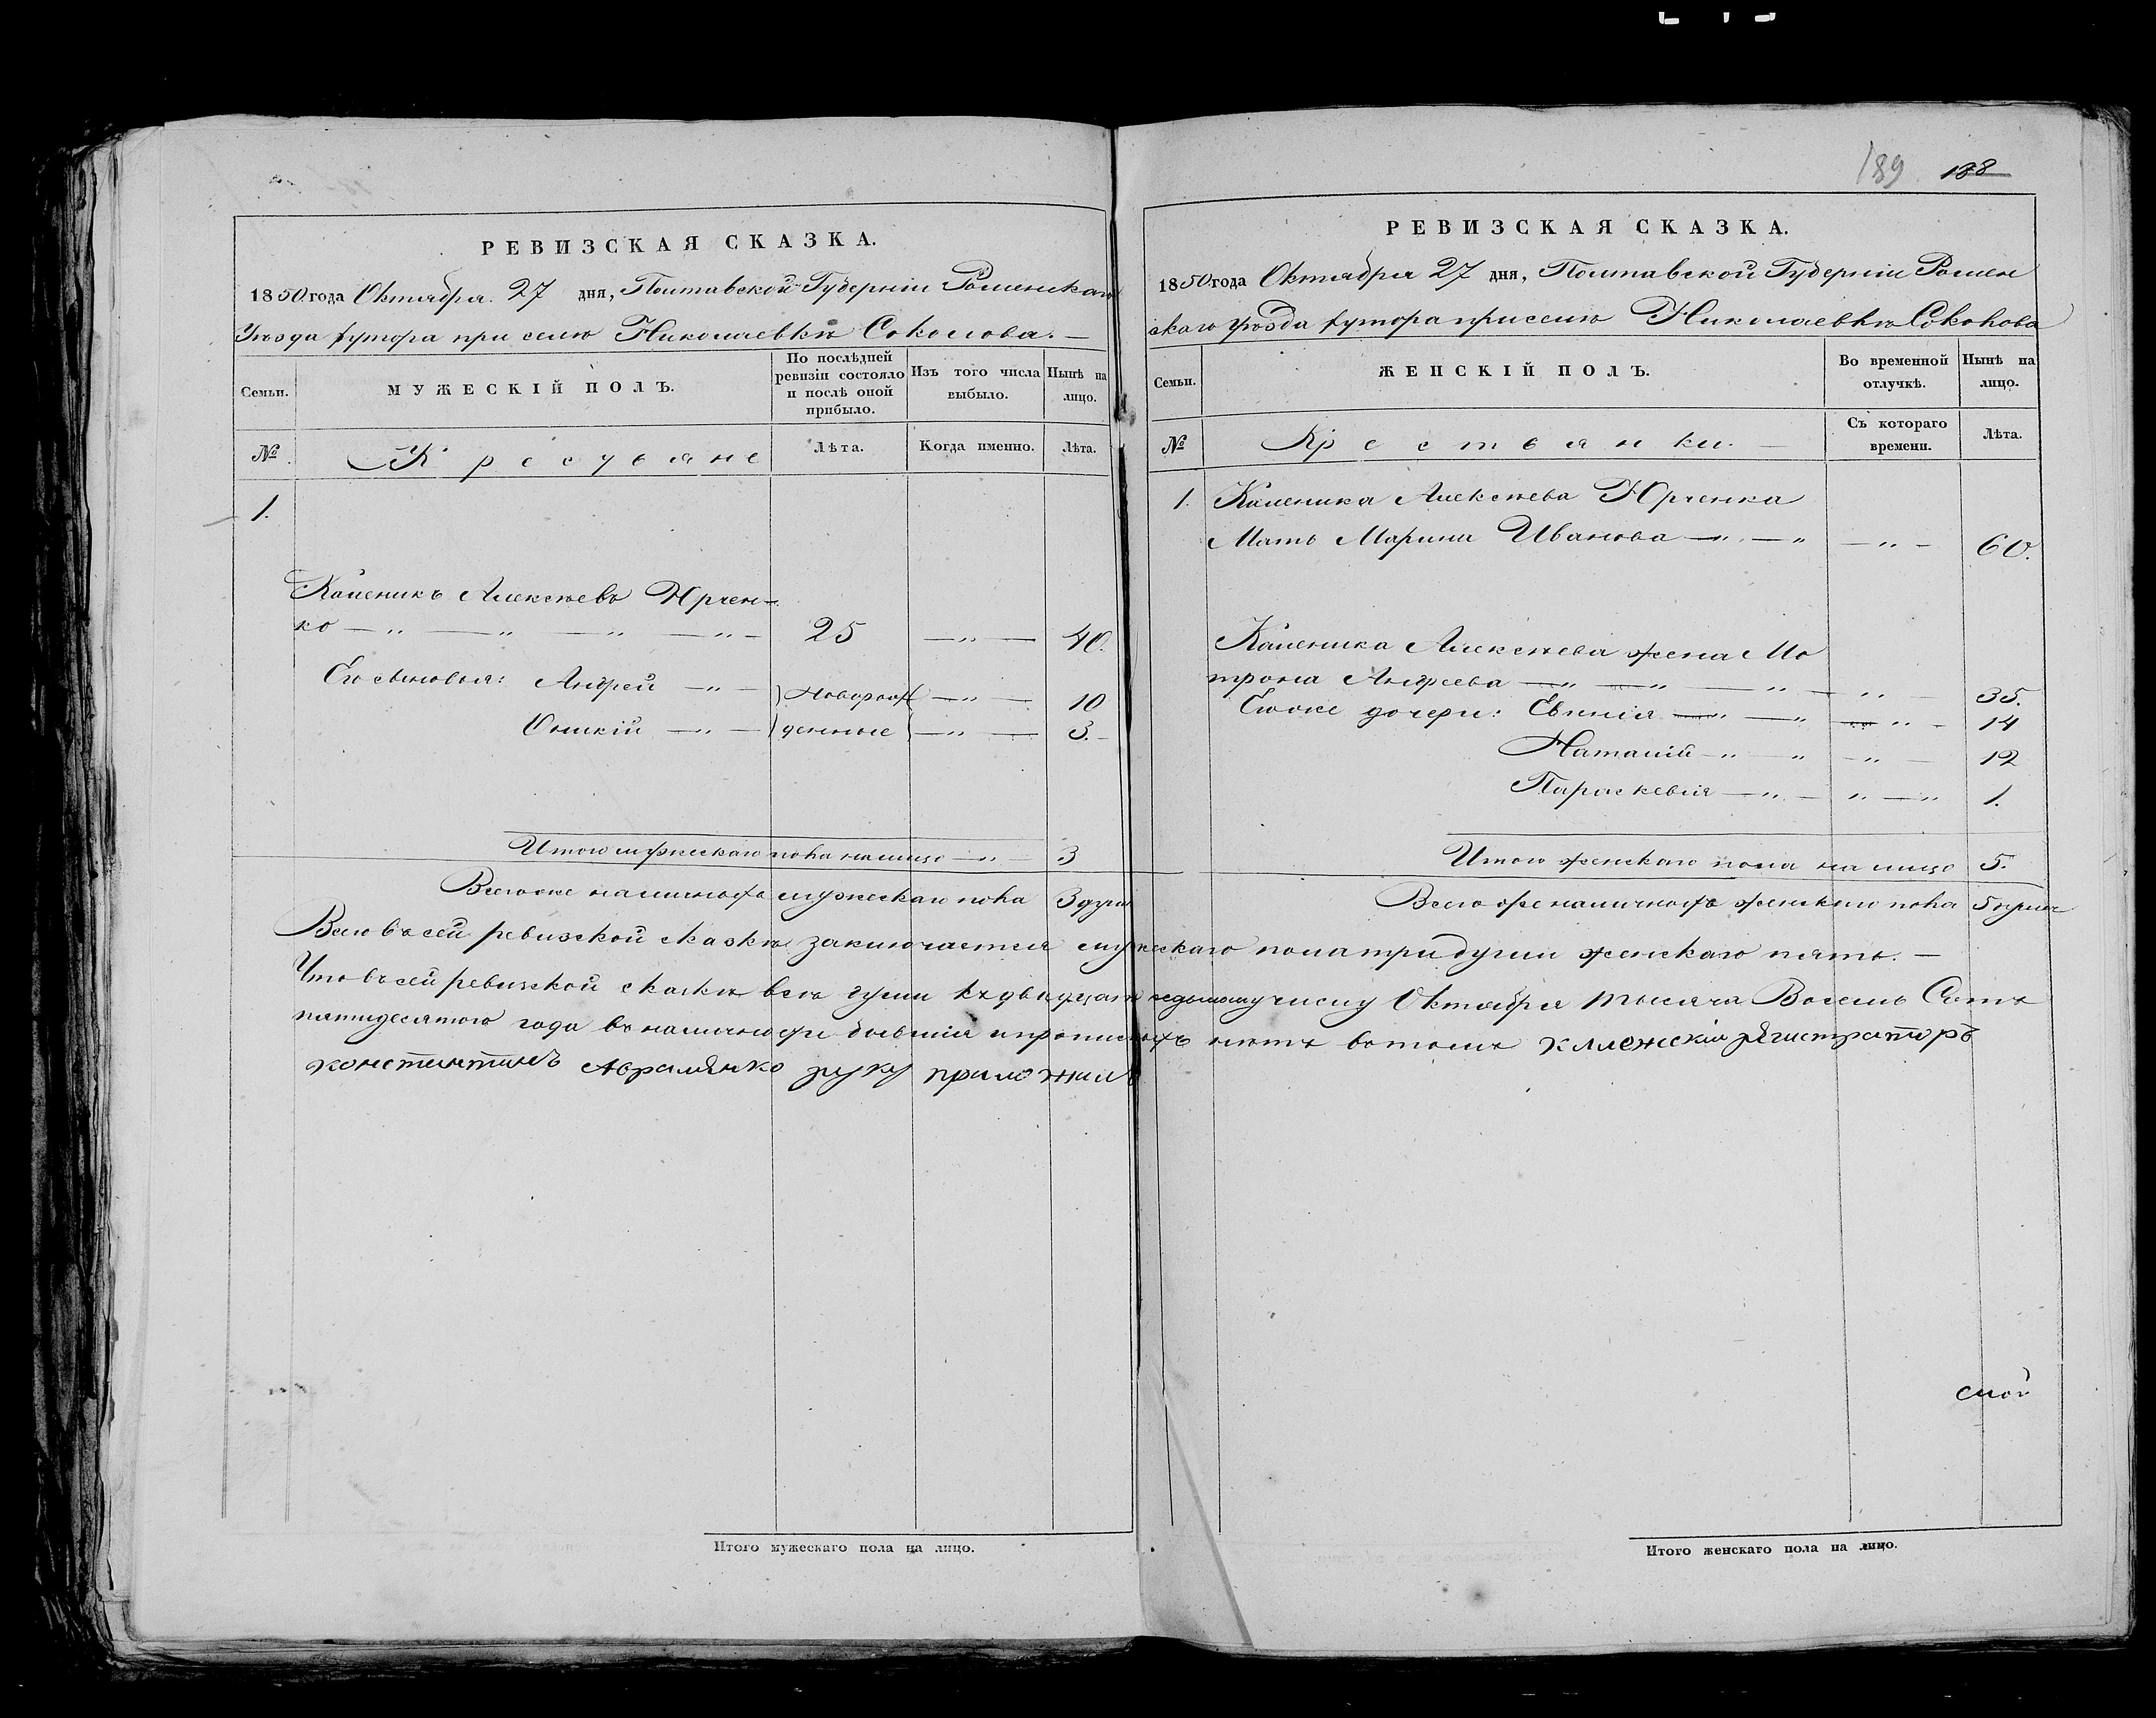 189 188
РЕВИЗСКАЯ СКАЗКА.
1850 года Октября 27 дня, Полтавской Губерніи Роменскаго
Уѣзда хутора при селѣ Николаевкѣ Соколова. —
Семьи.
МУЖЕСКІЙ ПОЛЪ.
По послѣдней
ревизіи состояло
и послѣ оной
прибыло.
Изъ того числа
выбыло.
Нынѣ на
лицо.
№
Крестьяне
Лѣта.
Когда именно.
Лѣта.
1.
Каленикъ Алексѣевъ Юрчен-
ко — „ — „ — „ — „ — 25 — „ — 40.
Его сыновья: Андрей — „ — новорож — „ — 10
— „ — денные — „ — 3. —
Итого мужескаго пола на лицо — „ — 3
Всего же наличныхъ мужескаго пола 3 души
РЕВИЗСКАЯ СКАЗКА.
1850 года Октября 27 дня, Полтавской Губерніи Ромен
скаго уѣзда хутора при селѣ Николаевкѣ Соколова
Семьи.
ЖЕНСКІЙ ПОЛЪ.
Во временной
отлучкѣ.
Нынѣ на
лицо.
№
Крестьянки. —
Съ котораго
времени.
Лѣта.
1. Каленика Алексѣева Юрченка
Мать Марина Иванова — „ — „ — „ — 60.
Каленика Алексѣева жена Мо
трона Андреева — „ — „ — „ — „ — 35.
Ею же дочери: Евгенія — „ — „ — „ — 14
Наталія — „ — „ — „ — 12
Параскевія — „ — „ — „ 1.
Итого женскаго пола на лицо 5.
Всего же наличныхъ женскаго пола 5 душъ
Всего въ сей ревизской сказкѣ заключается мужескаго пола три души женскаго пять. —
Что въ сей ревизской сказкѣ всѣ души къ двадцать седьмому числу Октября тысяча Восемь Сотъ
пятидесятого года въ наличности бывшія и прописныхъ нѣтъ въ томъ регистраторъ
Константинъ Авраменко руку приложилъ
Итого мужескаго пола на лицо.
Итого женскаго пола на лицо.